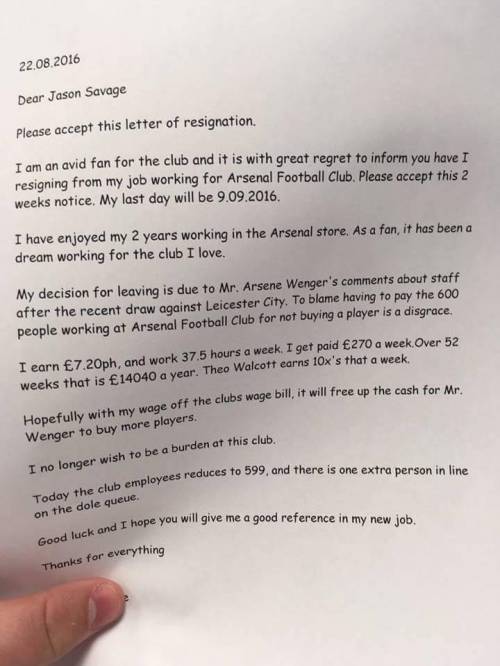 22.08.2016
Dear Jason Savage
Please accept this letter of resignation.
I am an avid fan for the club and it is with great regret to inform you have I
resigning from my job working for Arsenal Football Club. Please accept this 2
weeks notice. My last day will be 9.09.2016.
I have enjoyed my 2 years working in the Arsenal store. As a fan, it has been a
dream working for the club I love.
My decision for leaving is due to Mr. Arsene Wenger's comments about staff
after the recent draw against Leicester City. To blame having to pay the 600
people working at Arsenal Football Club for not buying a player is a disgrace.
I earn £7.20ph, and work 37.5 hours a week. I get paid £270 a week.Over 52
weeks that is £14040 a year. Theo Walcott earns 10x's that a week.
Hopefully with my wage off the clubs wage bill, it will free up the cash for Mr.
Wenger to buy more players.
I no longer wish to be a burden at this club.
Today the club employees reduces to 599, and there is one extra person in line
on the dole queue.
Good luck and I hope you will give me a good reference in my new job.
Thanks for everything